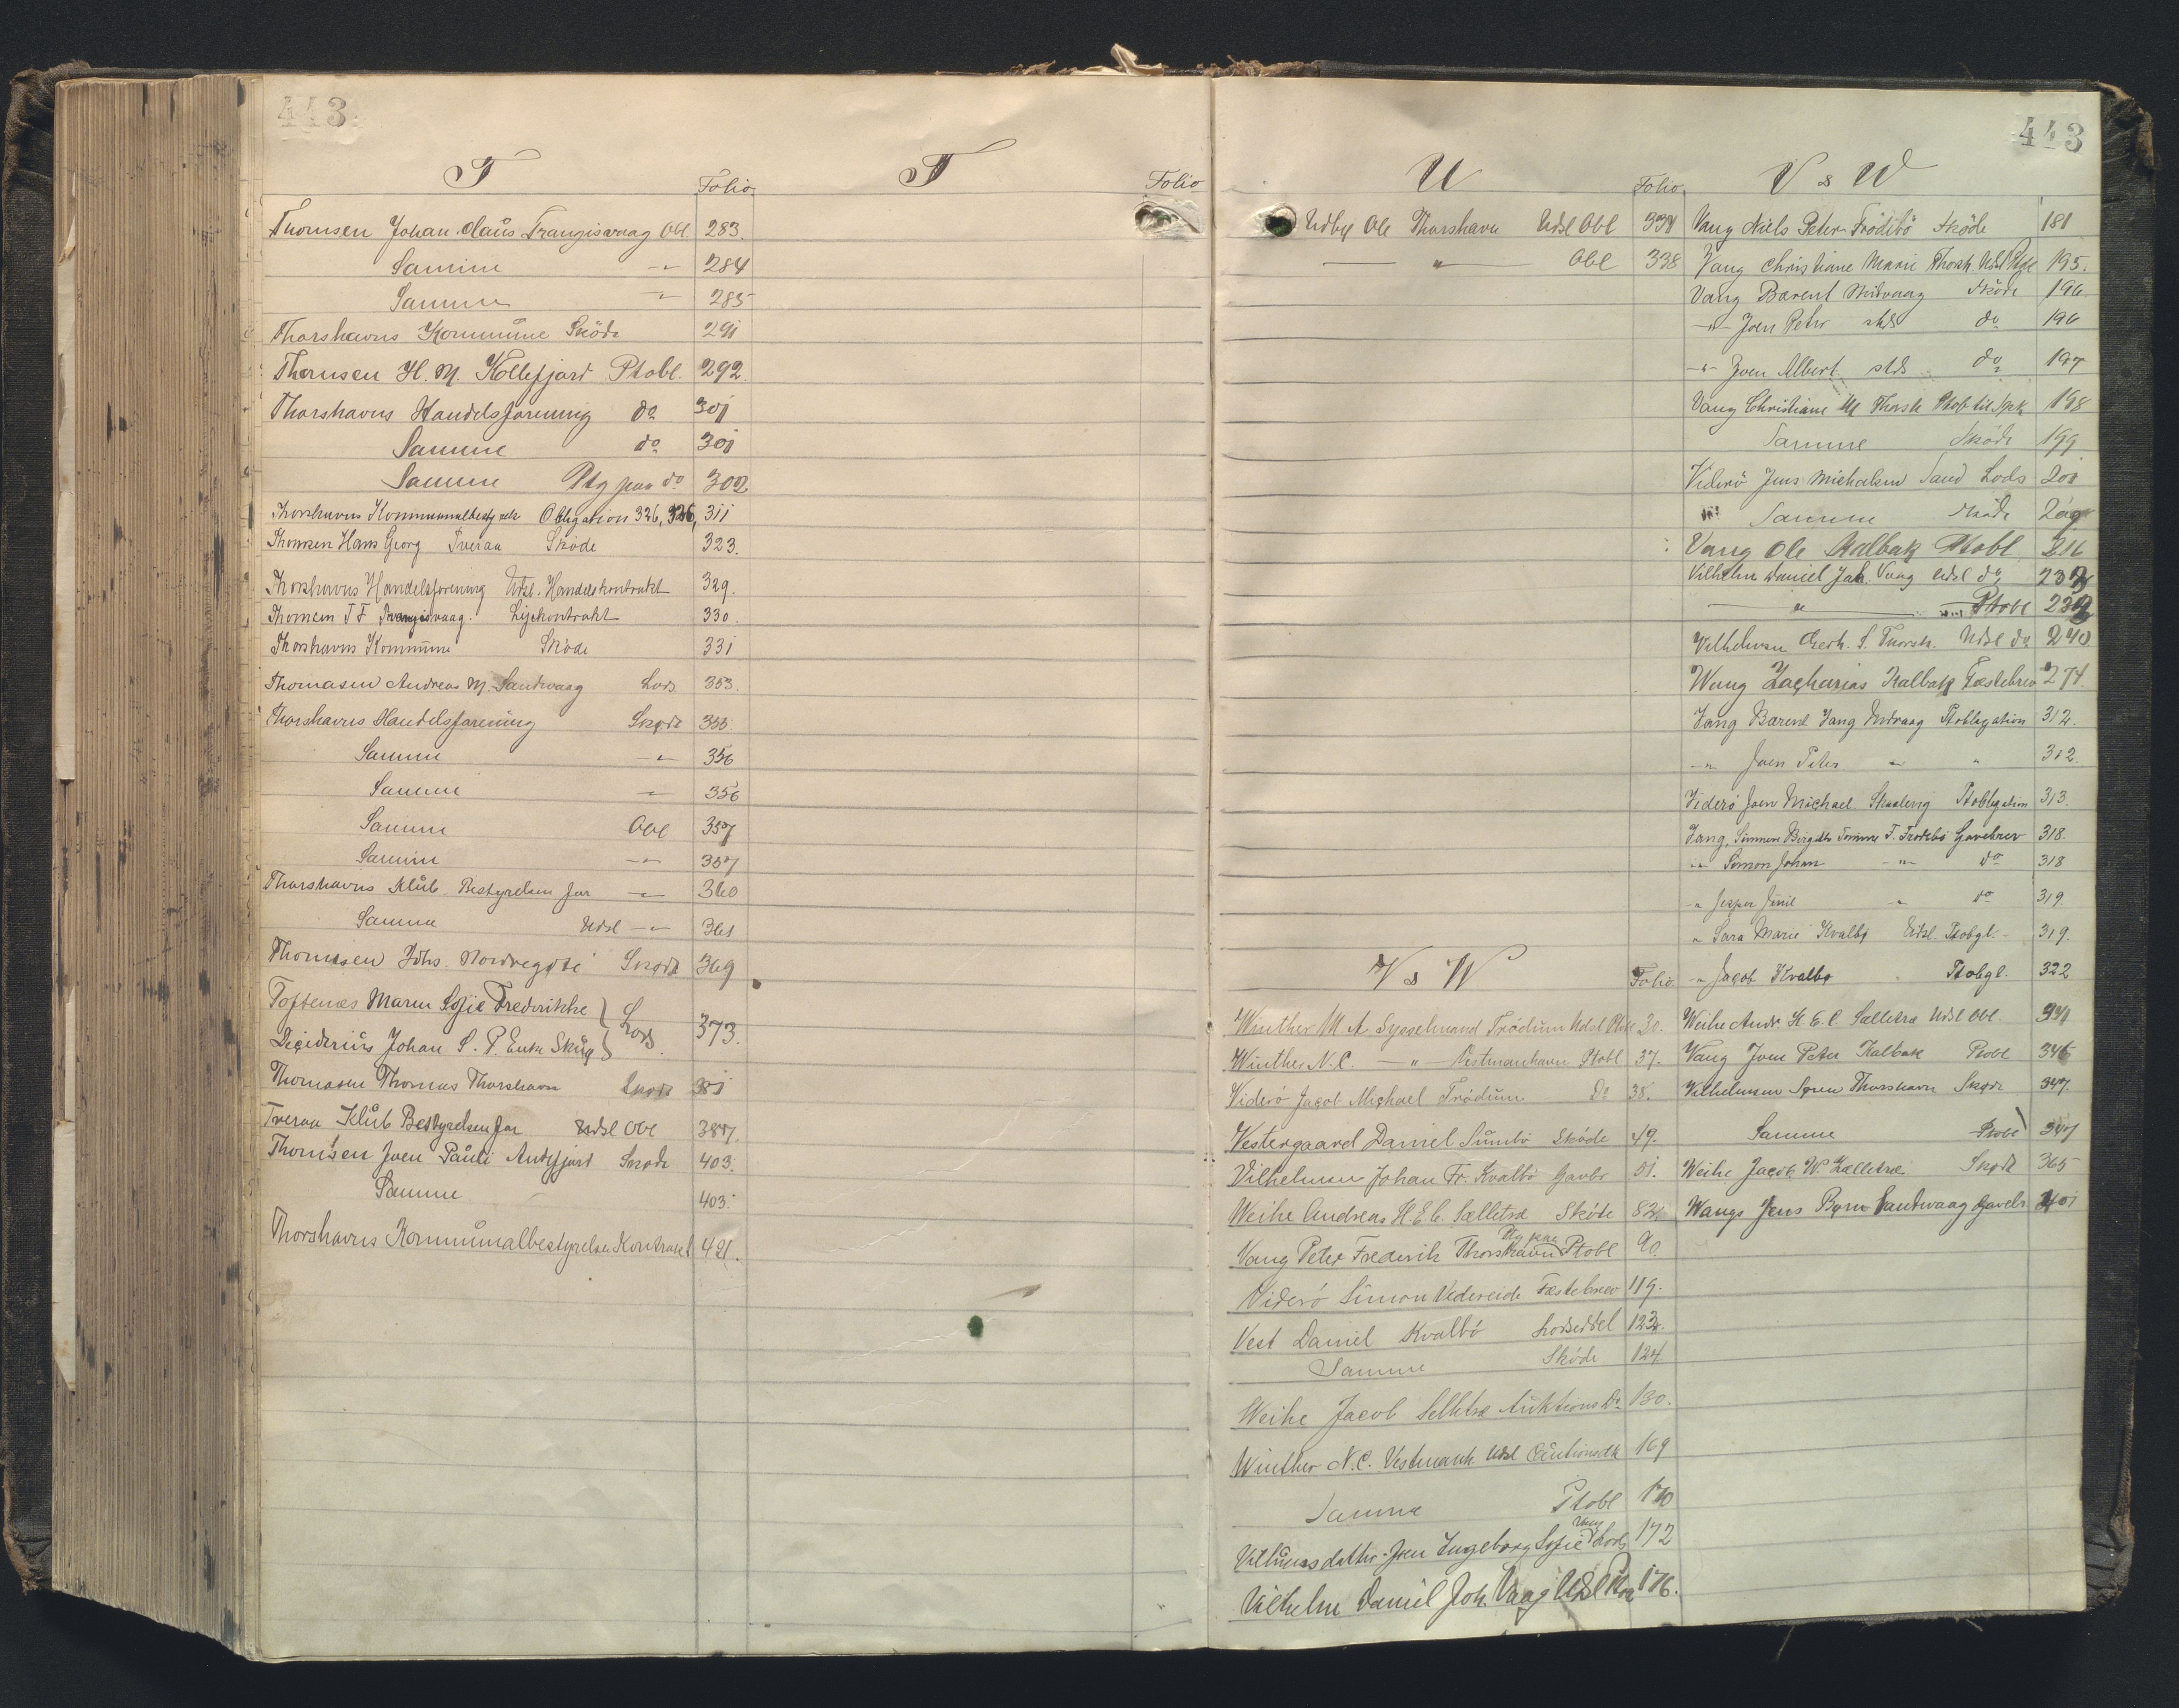 443
T
Folio
Thomsen Johan Claus Trangisvaag Obl 283.
Samme -"- 284
Samme -"- 285
Thorshavns Kommune Sköde 291
Thomsen H. M. Kollefjord Ptobl. 292.
Thorshavns Handelsforening do 301
Samme do 301
Samme Ptg paa do 302
Thorshavns Kommunalbestyrelse Obligation 326, 326, 311
Thomsen Hans Georg Tveraa Sköde 323.
Thorshavns Handelsforening Udsl. Handelskontrakt 329.
Thomsen J F Trangisvaag. Lejekontrakt 330.
Thorshavns Kommune Sköde 331
Thomasen Andreas M. Sandvaag Lods. 353.
Thorshavns Handelsforening Skøde 355.
Samme -"- 356
Samme -"- 356
Samme Obl 357
Samme -"- 357
Thorshavns Klub Bestyrelsen for -"- 360
Samme Udsl -"- 361
Thomsen Johs. Nordregøte Skøde 369
Toftenæs Maren Sofie Frederikke
Deciderius Johan S. P. Enke Lods. 373.
Thomasen Thomas Thorshavn Skøde 381
Tveraa Klub Bestyrelsen for Udsl Obl 387.
Thomsen Joen Pauli Andefjord Skøde 403.
Samme 403.
Thorshavns Kommunalbestyrelse Kontrakt 421.
T
Folio
443
U
Folio
Udby Ole Thorshavn Udsl Obl 337
— " — Obl 338
V & W
Folio
Winther M A Sysselmand Trødum Udsl Obl 30.
Winther N. C. -"- Vestmanhavn Ptobl 37.
Viderö Jacob Michael Trödum Do 38.
Vestergaard Daniel Sumbö Sköde 49.
Vilhelmsen Johan Fr. Kvalbö Gavbr 51.
Weihe Andreas H. E. C. Sælletræ Sköde 82.
Vang Peter Frederik Thorshavn Ptg paa Ptobl 90.
Viderö Simon Videreide Fæstebrev 119.
Vest Daniel Kvalbö Lodseddel 123.
Samme Sköde 124.
Weihe Jacob Selletræ Auktions Do 130.
Winther N. C. Vestmanh. Udsl Cautionsdk 169
Samme Ptobl 170
Vilhelmsdatter Joen Ingeborg Sofie Vaag Lods 172
Vilhelm Daniel Joh. Vaag Udsl 176.
V & W
Vang Niels Peter Frödebö Sköde 181
Vang Christiane Marie Thorsh. Udsl Ptobl 195.
Vang Barent Midvaag Sköde 196
-"- Joen Peter stds do 196
-"- Joen Albert stds do 197
Vang Christiane M Thorsh 198
Samme Sköde 199
Viderö Jens Michalsen Sand Lods 201
Samme Sköde 209
Vang Ole Kalbak Ptobl 216
Vilhelm Daniel Joh. Vaag Udsl do 237
— " — Ptobl 239
Vilhelmsen S. Thorsh. Udsl do 240
Wang Zacharias Kalbak Fæstebrev 274.
Vang Barent Vang Midvaag Ptobligation 312.
-"- Joen Peter -"- " 312.
Viderø Joen Michael Skaaleng Ptobligation 313.
Vang, Simmine Birgitte T. Frodebø Gavebrev 318.
-"- Simon Johan -"- do 318
-"- Jesper Emil " do 319.
-"- Sara Marie Kvalbø Udsl. Ptobgl. 319.
-"- Jacob Kvalbø Ptobgl. 322
Weihe Andr. H. E. C. Sælletræ Udsl Obl. 341
Vang Joen Peter Kalbak Ptobl 346
Vilhelmsen Søren Thorshavn Skøde 347.
Samme Ptobl 347
Weihe Jacob W. Sælletræ Skøde 365
Wangs Jens Børn Sandvaag Gavebr 401